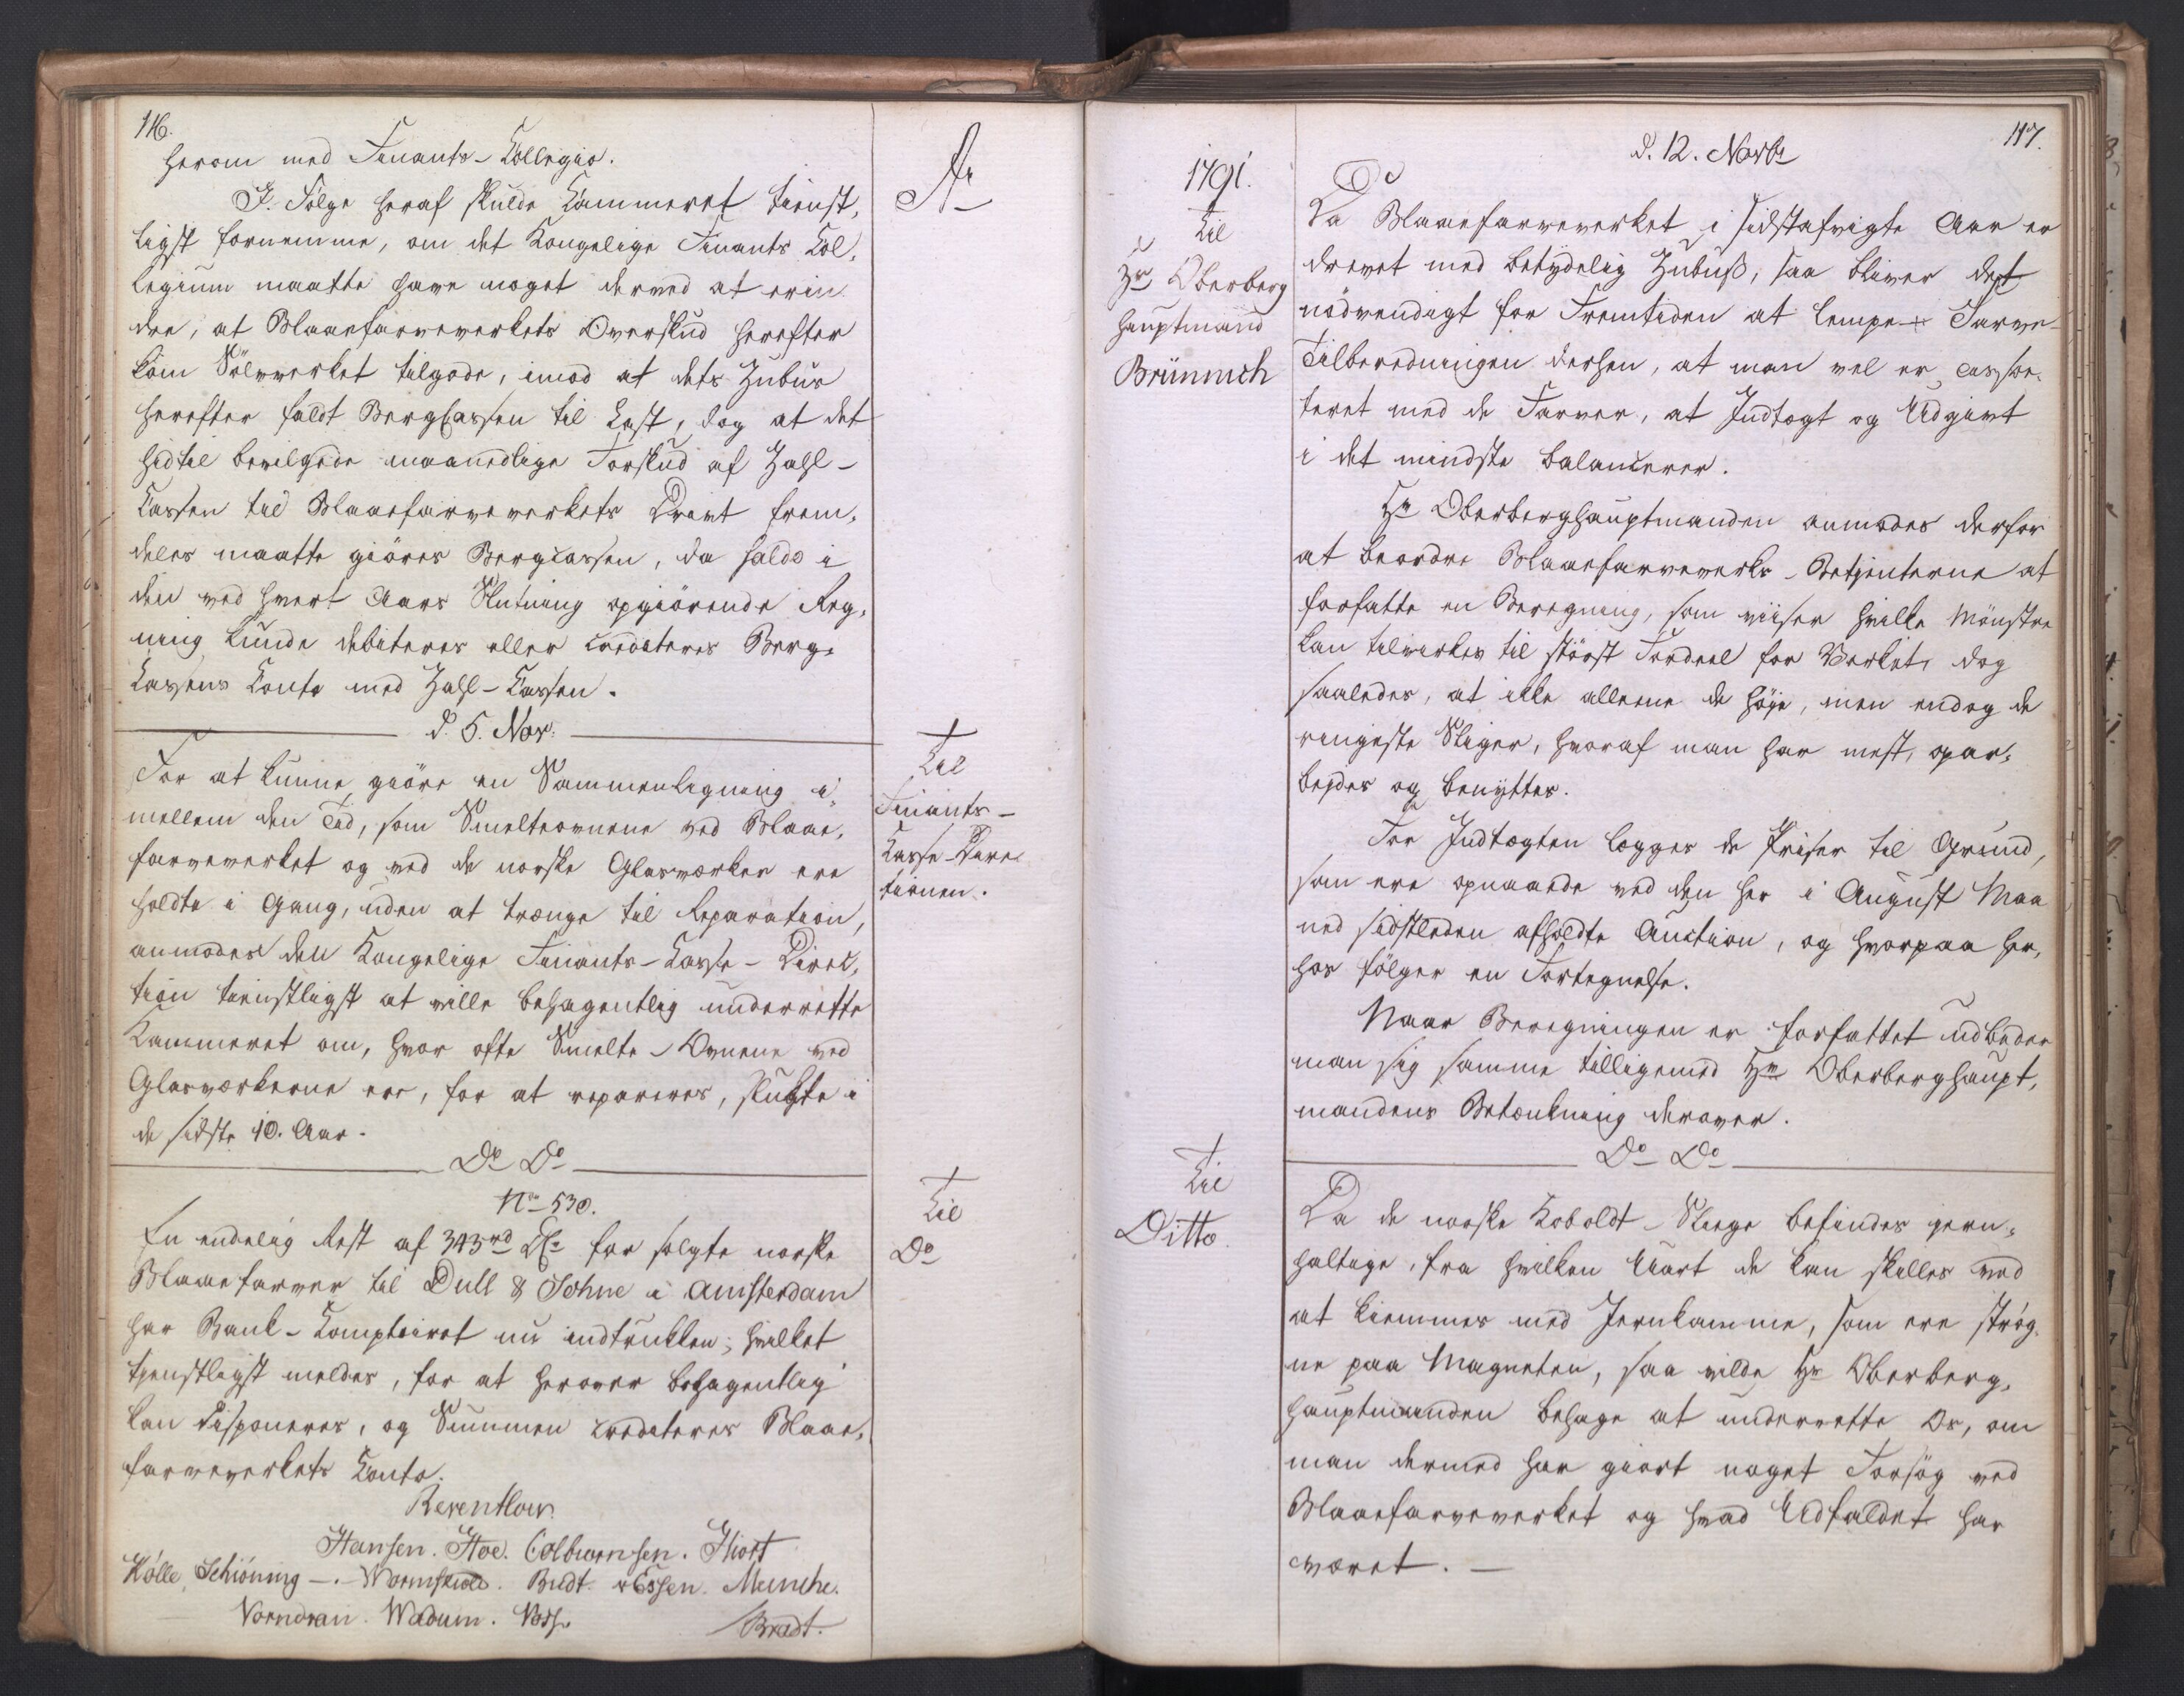 116.
herom med Finants-Collegio.
I Følge heraf skulde Kammeret tienst-
ligst fornemme, om det Kongelige Finants Col-
legium maatte have noget derved at erin-
dre, at Blaaefarveverkets Overskud herefter
kom Sölvverket tilgode, imod at dets Zubus
herefter faldt BergCassen til Last, dog at det
hidtil bevilgede maanedlige Forskud af Zahl-
Cassen til Blaaefarveverkets Drivt frem-
deles maatte giöres Bergcassen, da Saldo i
den ved hvert Aars Slutning opgiörende Reg-
ning kunde debiteres eller crediteres Berg-
Cassens Conto med Zahl-Cassen.
d. 5. Nov:
For at kunne giöre en Sammenligning i-
mellem den Tid, som Smelteovnene ved Blaae-
farveverket og ved de norske Glasværker ere
holdte i Gang, uden at trænge til Reparation,
anmodes den Kongelige Finants-Casse-Direc-
tion tienstligst at ville behagentlig underrette
Kammeret om, hvor ofte Smelte-Ovnene ved
Glasværkerne ere, for at repareres, slukte i
de sidste 10. Aar.
Do Do
No 530.
En endelig Rest af 343 rd for solgte norske
Blaaefarver til Dull & Sohne i Amsterdam
har Bank-Comptoiret nu indtrukken; hvilket
tjenstligst meldes, for at herover behagentlig
kan disponeres, og Summen crediteres Blaae-
farveverkets Conto.
Reventlow.
Hansen. Hoe. Colbiørnsen. Hiort
Kölle Schiönning -.- Wormskiold. Budt. v Essen. Meinche.
Vorndran. Wadum. Voss.
Bradt.
Ao
Til
Finants-
Casse-Direc
tionen.
Til
Do
117.
1791.
d. 12. Novbr
Til
Hr. Oberberg
hauptmand
Brünnich
Da Blaaefarveverket i sidstafvigte Aar er
drevet med betydelig Zubuß, saa bliver det
nödvendigt for Fremtiden at lempe Farve-
Tilberedningen derhen, at man vel er assor-
teret med de Farver, at Indtægt og Udgivt
i det mindste balancerer.
Hr Oberberghauptmanden anmodes derfor
at beordre Blaaefarveverks-Betjenterne at
forfatte en Beregning, som viiser hvilke Mönstre
kan tilvirkes til störst Fordeel for Verket, dog
saaledes, at ikke alleene de höye, men endog de
ringeste Sliger, hvoraf man har mest, opar-
bejdes og benyttes.
For Indtægten lægges de Priser til Grund,
som ere opnaaede ved den her i August Maa
ned sidstleden afholdte Auction, og hvorpaa her-
hos fölger en Fortegnelse.
Naar Beregningen er forfattet udbeder
man sig samme tilligemed Hr Oberberghaupt-
mandens Betænkning derover.
Do Do
Til
Ditto.
Da de norske Koboldt-Sliege befindes jern-
haltige, fra hvilken Uart de kan skilles ved
at kiemmes med Jernkamme, som ere strög-
ne paa Magneten, saa vilde Hr Oberberg-
hauptmanden behage at underrette Os, om
man dermed har giort noget Forsög ved
Blaaefarveverket og hvad Udfaldet har
været. —